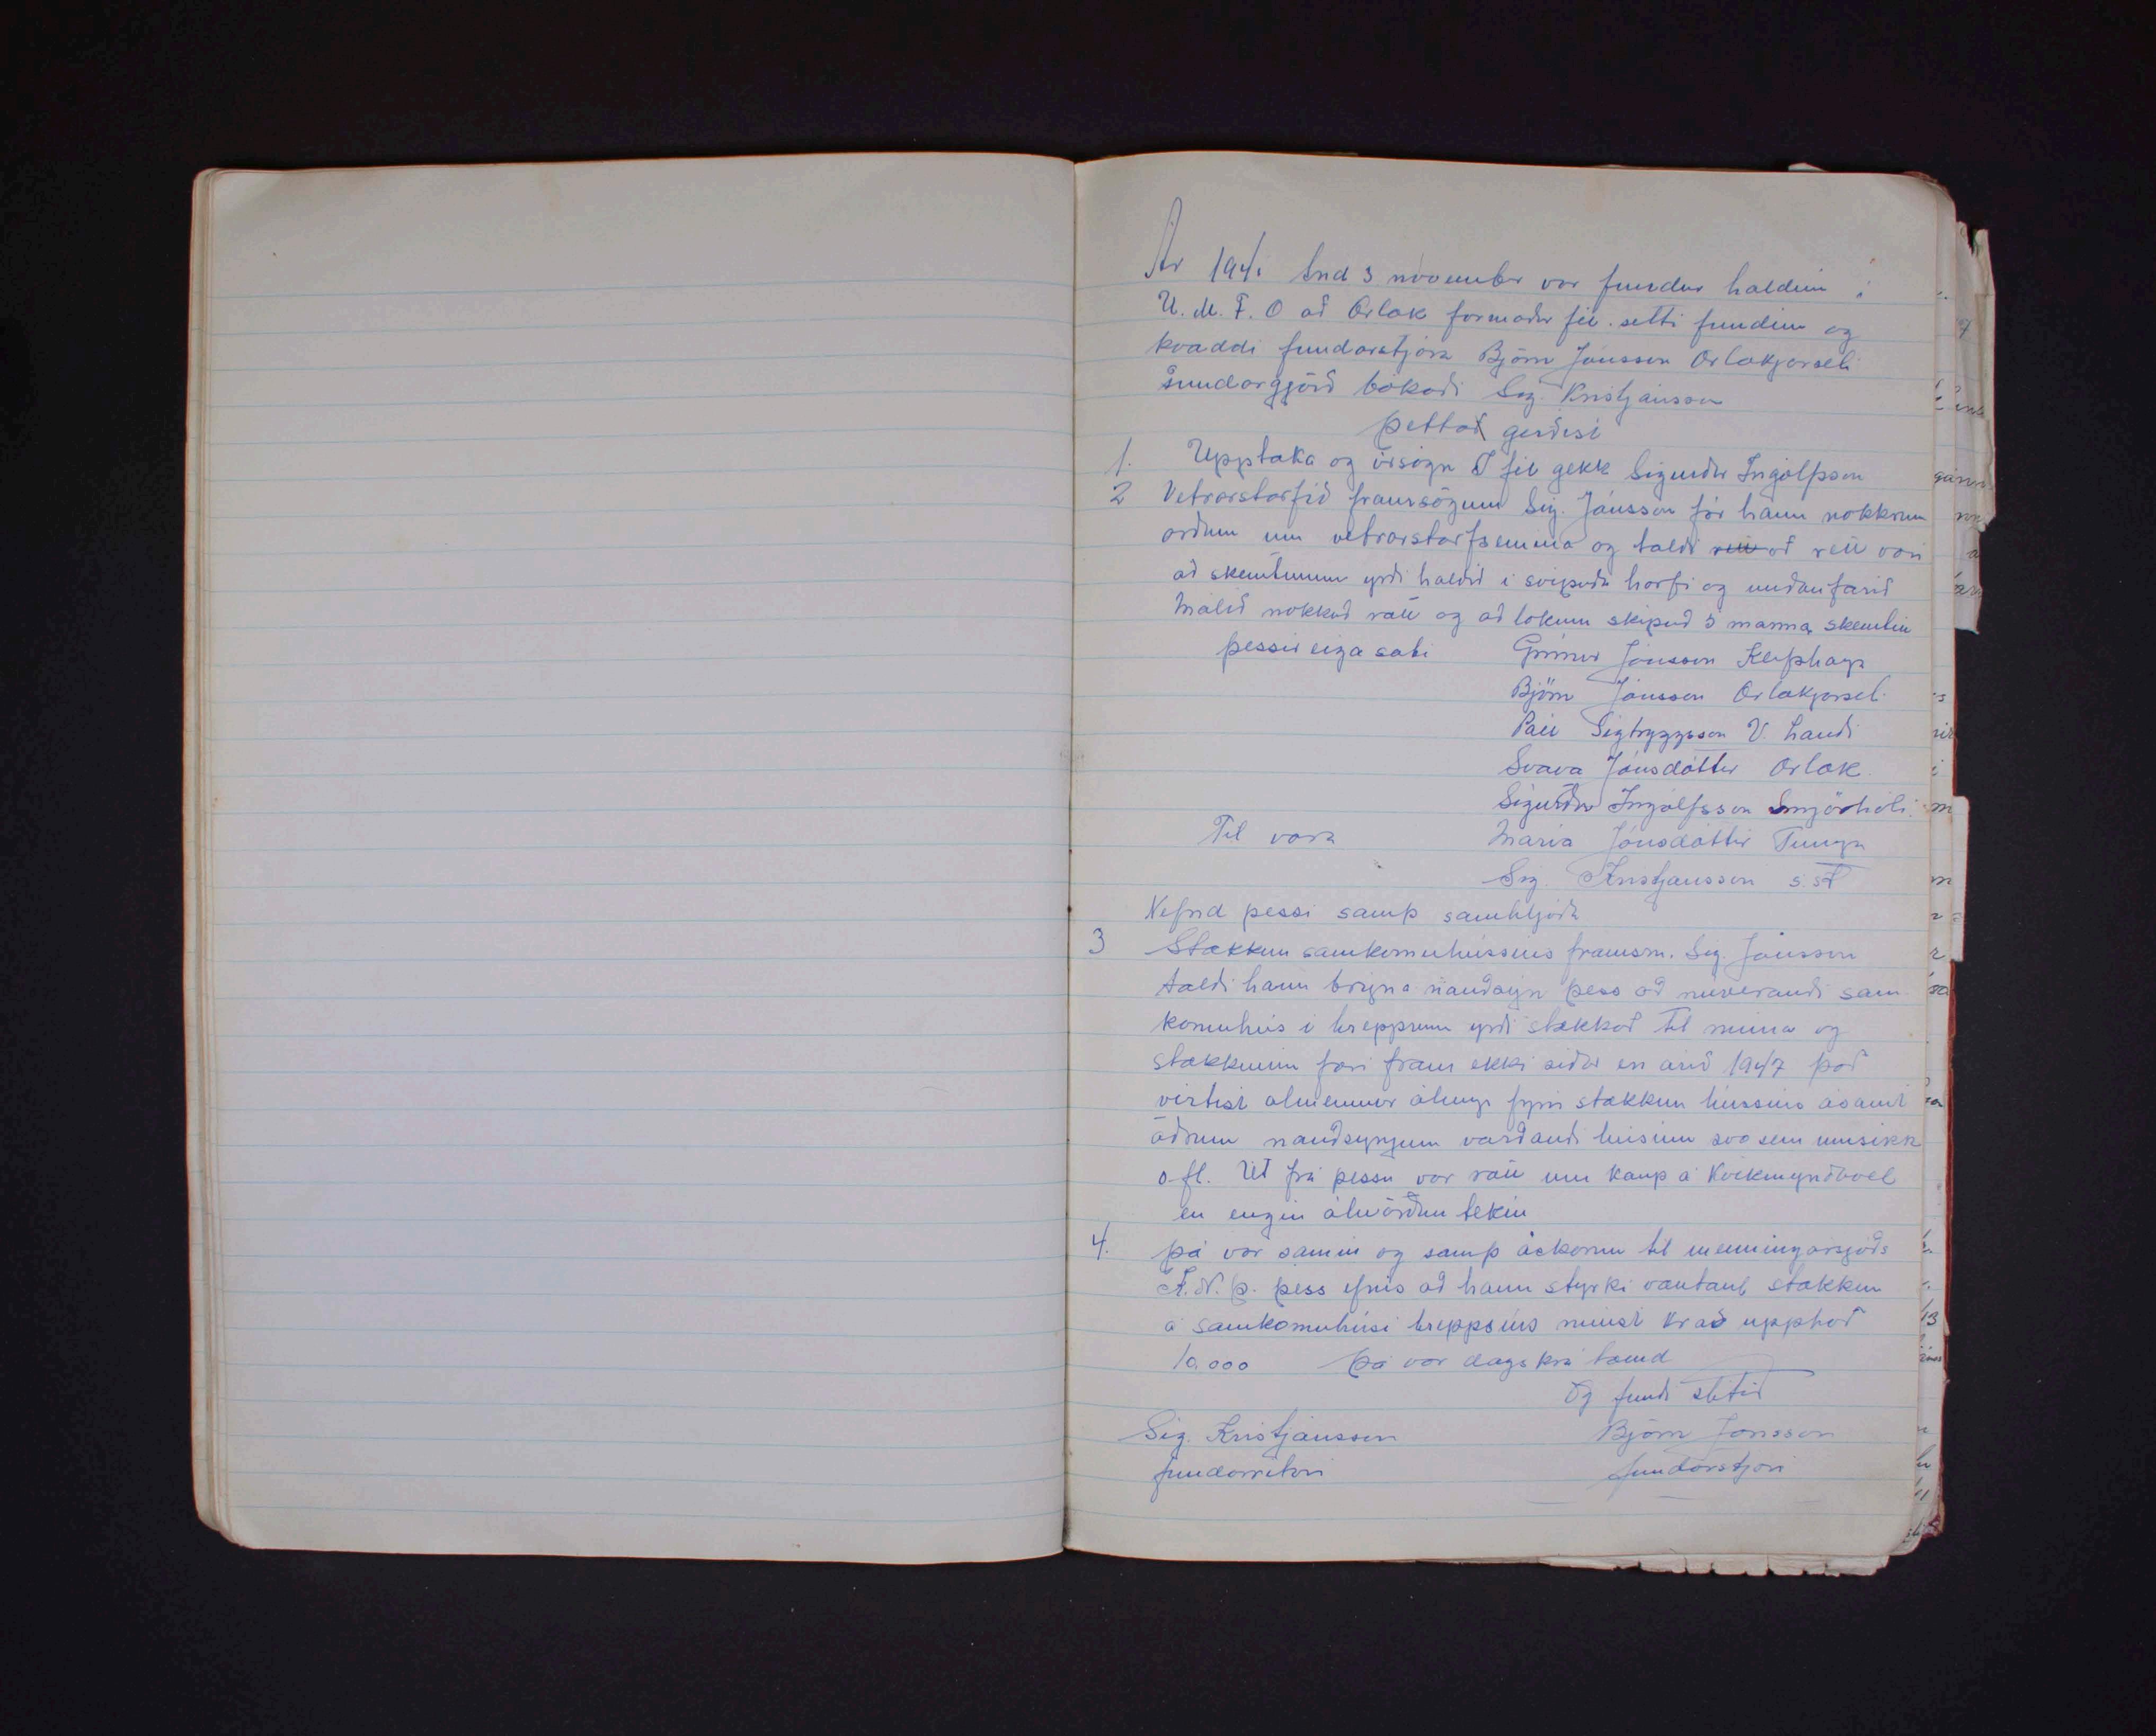 Ár 194 3 november var fundur haldin í
U. M. F. O að Ærlæk formaður fél. setti fundin og
kvaddi fundarstjóra Björn Jónsson Ærlækjarseli
Fundargjörð bókaði Sig. Kristjánsson
þetta gerðist
1. Upptaka og úrsögn Í fél gekk Sigurður Ingólfsson
2 Vetrarstarfið framsögum Sig. Jónsson fór hann nokkrum
orðum um vetrarstarfsemina og taldi að rétt væri
að skemtunum yrði haldið í svipuðu horfi og undanfarið
Málið nokkuð rætt og að lokum skipuð 5 manna skemtin
þessir eiga sæti Grímur Jónsson Klifshaga
Björn Jónsson Ærlækjarsel
Páll Sigtryggsson V. Landi
Svava Jónsdóttir Ærlæk
Sigurður Ingólfsson Smjörhóli.
Til vara María Jónsdóttir Tunga
Sig. Kristjánsson s. st
Nefnd þessi samþ samhljóða
3 Stækkun samkomuhússins framsm. Sig. Jónsson
taldi hann brýna nauðsyn þess að núverandi sam
komuhús í hreppnum yrði stækkað til muna og
stækkunin færi fram ekki síðar en árið 1947 það
virtist almennur áhugi fyrir stækkun hússins ásamt
öðrum nauðsynjum varðandi húsinu svo sem musikk
o. fl. Út frá þessu var rætt um kaup á kvikmyndavél
en engin ákvörðun tekin
4. Þá var samin og samþ áskorun til menningarsjóðs
K. N. Þ. þess efnis að hann styrki væntanl stækkun
á samkomuhúsi hreppsins minst kr að upphæð
10.000 Þá var dagskrá tæmd
Og fundi slitið
Sig. Kristjánsson Björn Jónsson
fundarritari fundarstjóri